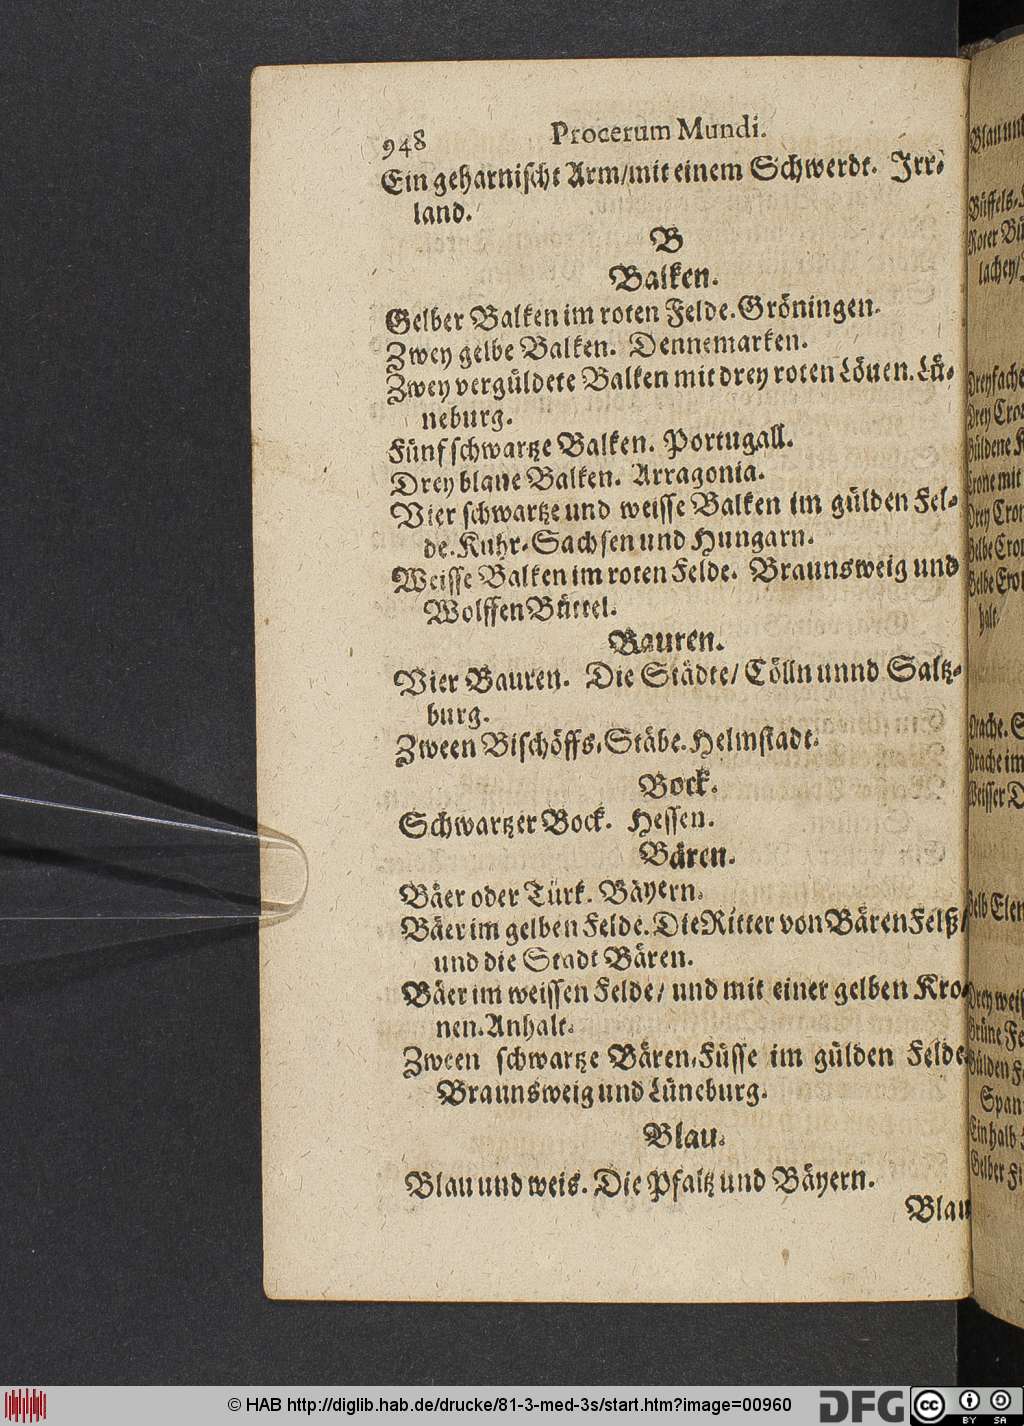 948 Procerum Mundi.
Ein geharnischt Arm/mit einem Schwerdt. Irr-
land.
B
Balken.
Gelber Balken im roten Felde. Gröningen.
Zwey gelbe Balken. Dennemarken.
Zwey vergüldete Balken mit drey roten Löuen. Lü-
neburg.
Fünf schwartze Balken. Portugall.
Drey blaue Balken. Arragonia.
Vier schwartze und weisse Balken im gülden Fel-
de. Kuhr-Sachsen und Hungarn.
Weisse Balken im roten Felde. Braunsweig und
Wolffen Büttel.
Bauren.
Vier Bauren. Die Städte/ Cölln unnd Saltz-
burg.
Zween Bischöffs-Stäbe. Helmstadt.
Bock.
Schwartzer Bock. Hessen.
Bären.
Bäer oder Türk. Bäyern.
Bäer im gelben Felde. Die Ritter von Bären Felß/
und die Stadt Bären.
Bäer im weissen Felde/ und mit einer gelben Kro-
nen. Anhalt.
Zween schwartze Bären-Füsse im gülden Felde.
Braunsweig und Lüneburg.
Blau.
Blau und weis. Die Pfaltz und Bäyern.
Blau
Büffels-
Roter
lachen/
Dreyfache
Drey
Krone mit
Drey
Gelbe
Gelbe
halt.
Drache.
Drache im
Weisser
Gelb Elen
Drey weis
Grüne
Gülden
Span
Ein halb
Gelber
© HAB http://diglib.hab.de/drucke/81-3-med-3s/start.htm?image=00960
DFG
cc
BY SA